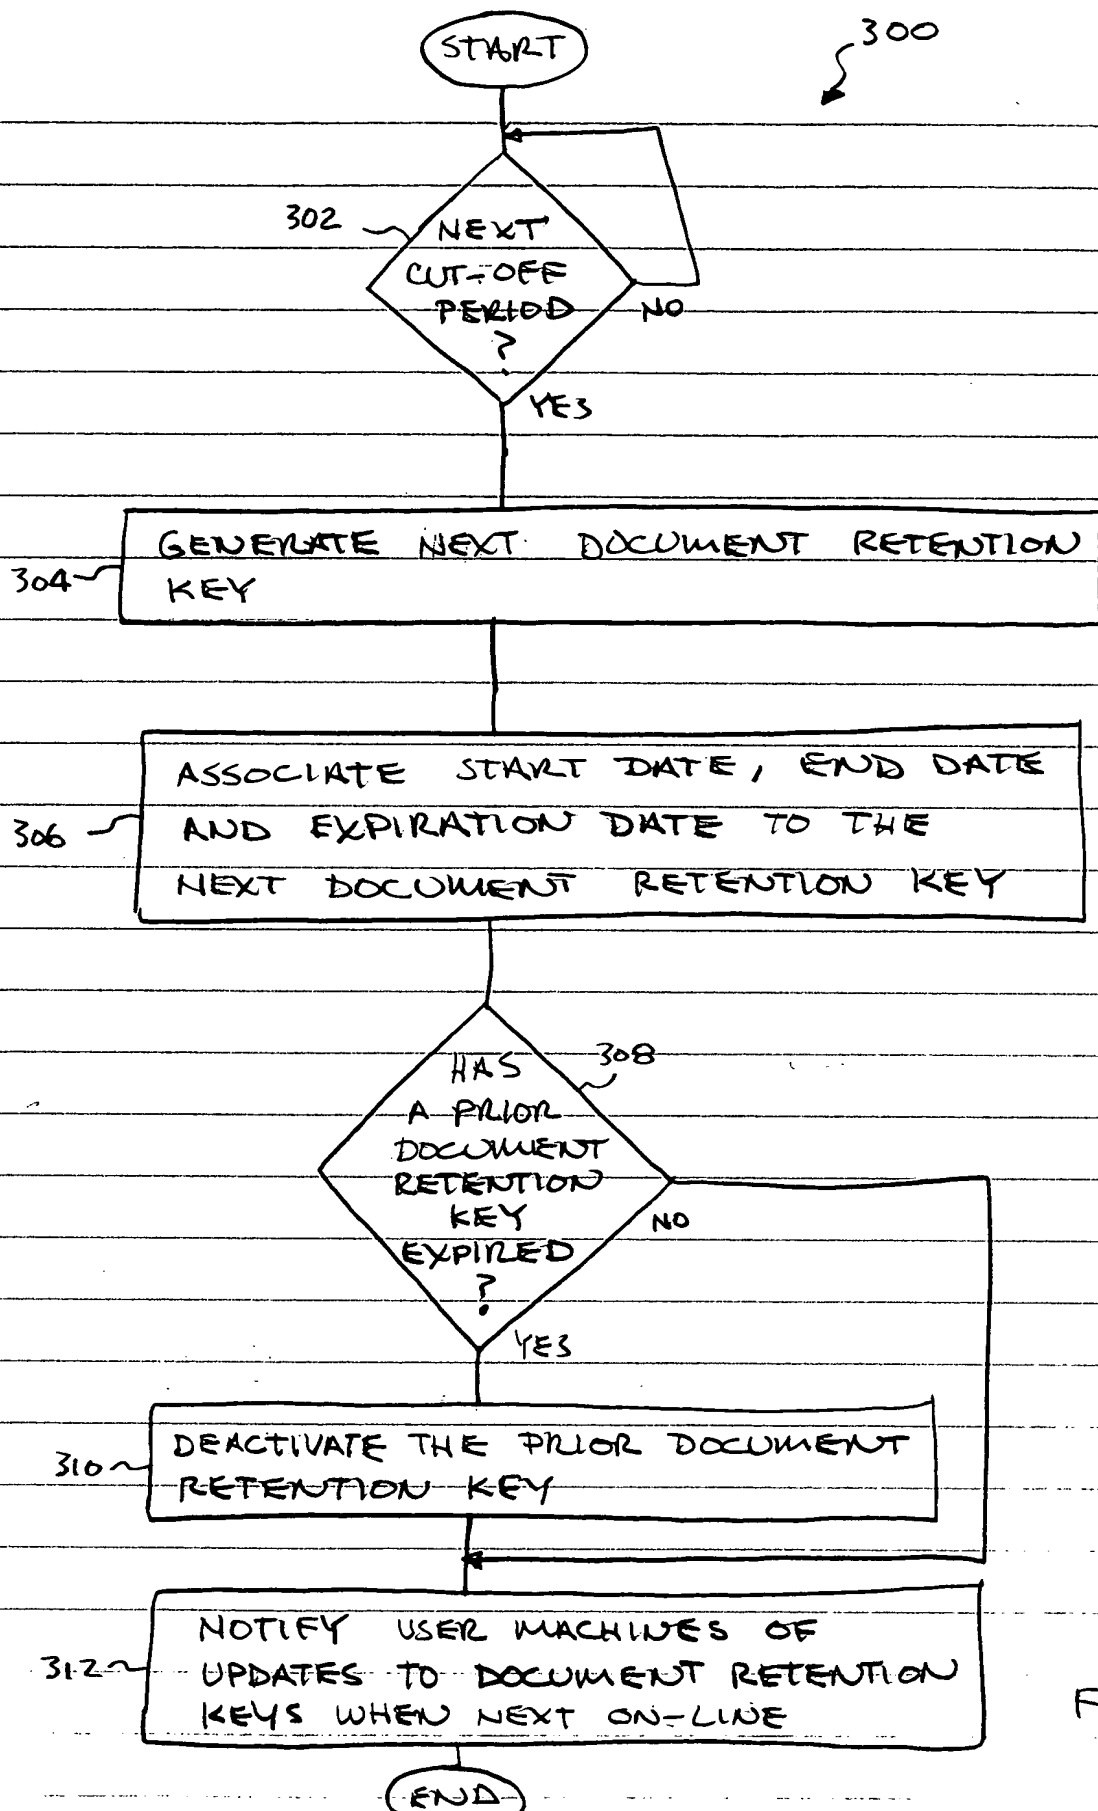 START
300
302
NEXT
CUT-OFF
PERIOD
?
NO
YES
GENERATE NEXT DOCUMENT RETENTION
304
KEY
ASSOCIATE START DATE, END DATE
306
AND EXPIRATION DATE TO THE
NEXT DOCUMENT RETENTION KEY
308
HAS
A PRIOR
DOCUMENT
RETENTION
KEY
NO
EXPIRED
?
YES
DEACTIVATE THE PRIOR DOCUMENT
310
RETENTION KEY
NOTIFY USER MACHINES OF
312
UPDATES TO DOCUMENT RETENTION
KEYS WHEN NEXT ON-LINE
F
END